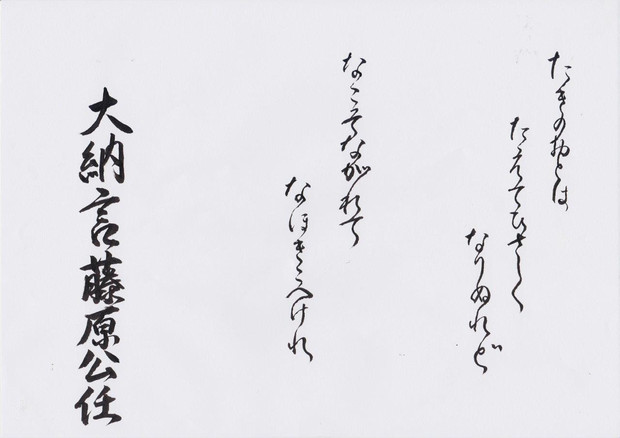 たきのおとは
たえてひさしく
なりぬれど
なこそながれて
なほきこへけれ
大納言藤原公任